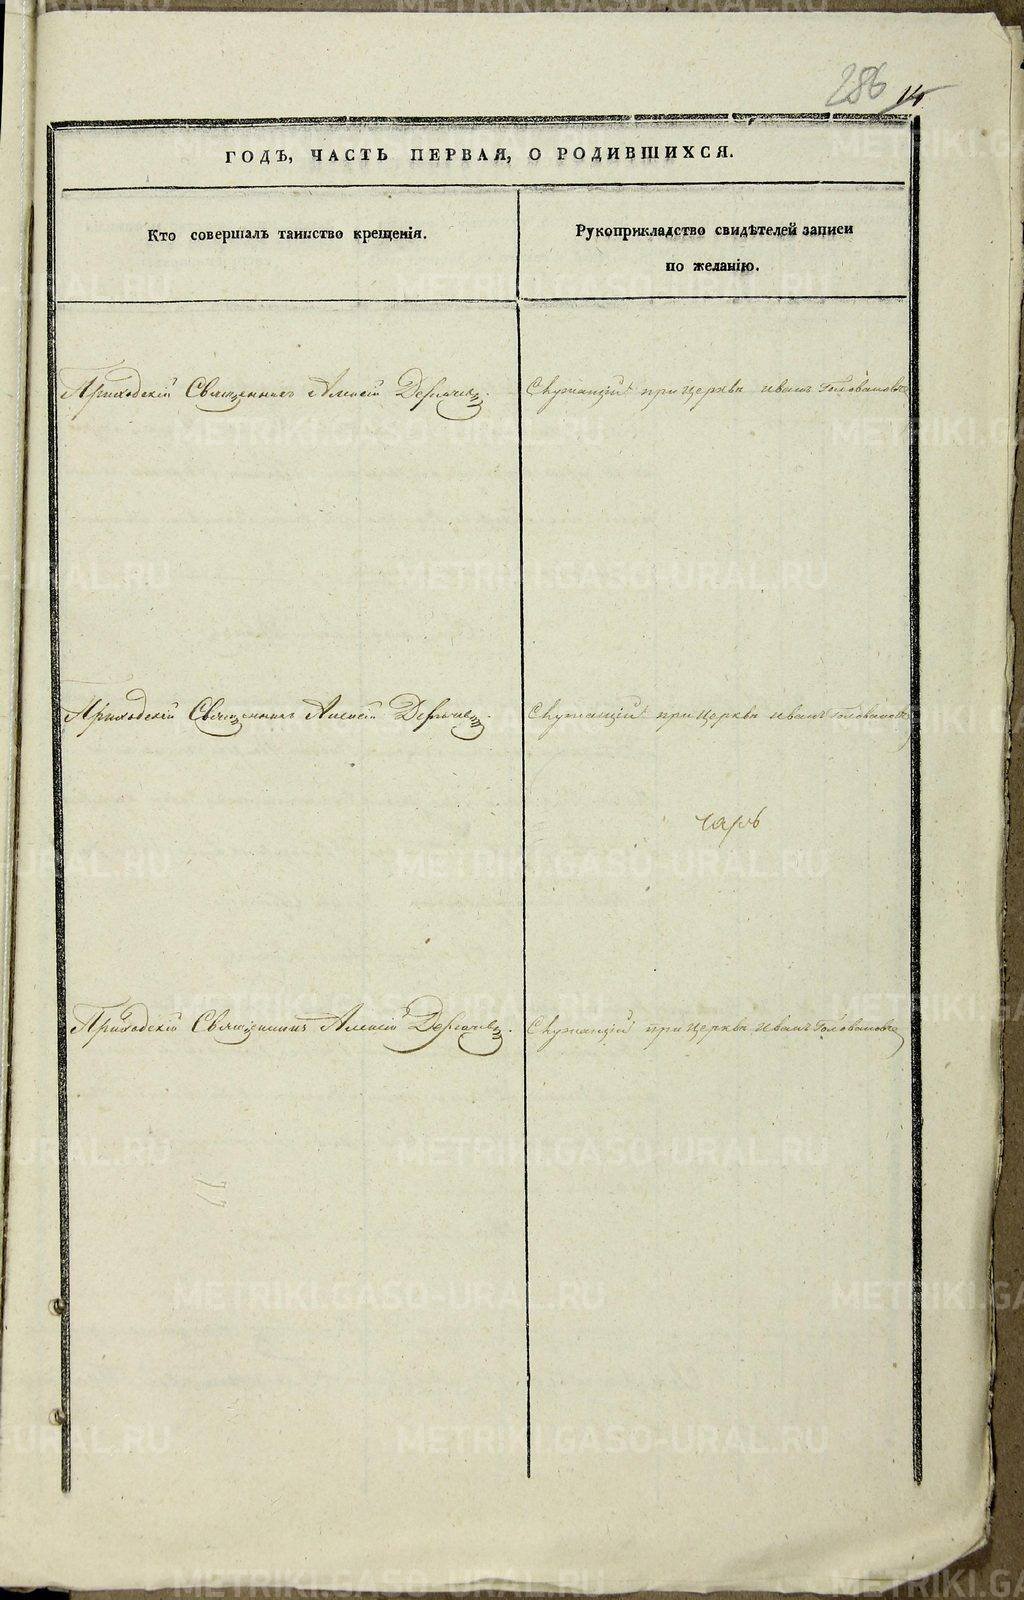 286 14
ГОДЪ, ЧАСТЬ ПЕРВАЯ, О РОДИВШИХСЯ.
Кто совершалъ таинство крещенія.
Рукоприкладство свидѣтелей записи
по желанію.
Приходскій Священникъ Алексій Дерпачевъ. Служащій при церкви Иванъ Головановъ
Приходскій Священникъ Алексій Дерпачевъ. Служащій при церкви Иванъ Головановъ
Приходскій Священникъ Алексій Дерпачевъ. Служащій при церкви Иванъ Головановъ
METRIKI.GASO-URAL.RU